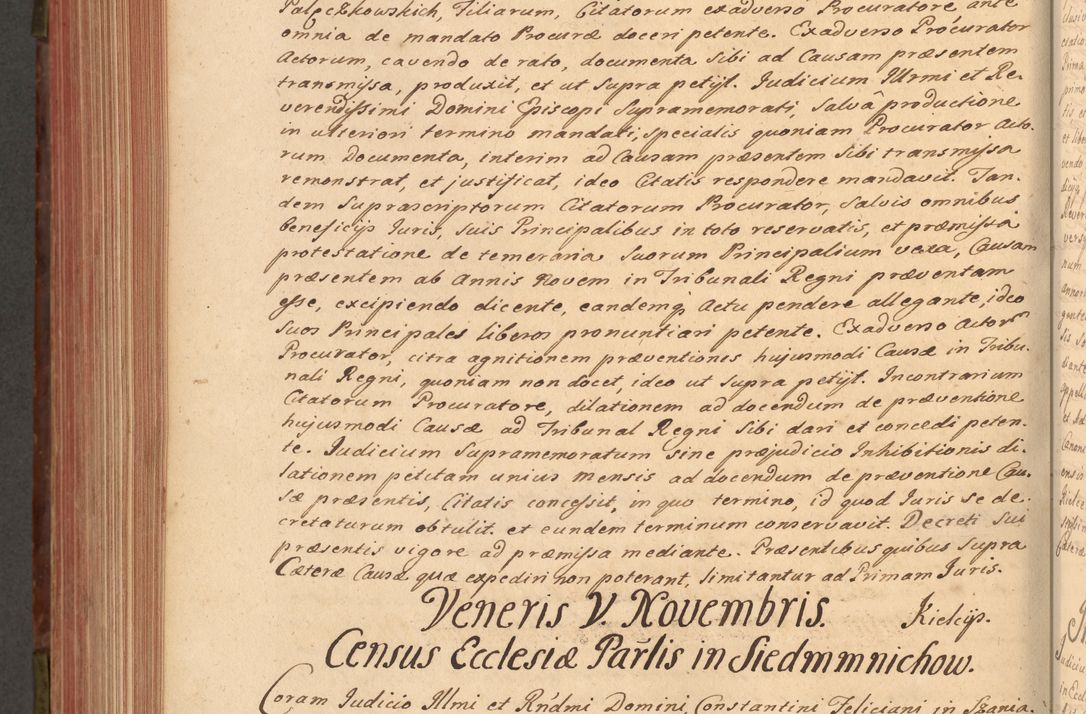 Palęczkowskich, Filiarum, Citatorum exadverso Procuratore ante
omnia de mandato Procuræ doceri petente. Exadverso Procurator
Actorum, cavendo de rato, documenta Sibi ad Causam præsentem
transmissa, produxit, et ut Supra petijt. Judicium Illrmi et Re-
verendissimi Domini Episcopi Supramemorati, Salvâ productione
in ulteriori termino mandati, specialis quoniam Procurator Acto-
rum Documenta, interim ad Causam præsentem Sibi transmissa
remonstrat, et justificat, ideo Citatis respondere mandavit. Tan-
dem Suprascriptorum Citatorum Procurator, Salvis omnibus
beneficijs Juris, Suis Principalibus in toto reservatis, et præmissâ
protestatione de temeraria Suorum Principalium vexa, Causam
præsentem ab Annis Novem in Tribunali Regni præventam
esse, excipiendo dicente, eandemq; Actu pendere allegante, ideo
Suos Principales liberos pronuntiari petente. Exadverso Actorum
Procurator, citra agnitionem præventionis hujusmodi Causæ in Tribu-
nali Regni, quoniam non docet, ideo ut Supra petijt. Incontrarium
Citatorum Procuratore, dilationem ad docendum de præventione
hujusmodi Causæ ad Tribunal Regni Sibi dari et concedi peten-
te. Judicium Supramemoratum sine præjudicio Inhibitionis di-
lationem petitam unius mensis ad docendum de præventione Cau-
sæ præsentis, Citatis concessit, in quo termino, id quod Juris se de-
cretaturum obtulit. et eundem terminum conservavit. Decreti Sui
præsentis vigore ad præmissa mediante. Præsentibus quibus Supra
Cæteræ Causæ quæ expediri non poterant, limitantur ad Primam Juris.
Veneris V. Novembris. Kielcijs.
Census Ecclesiæ Parlis in Siedmmnichow.
Coram Judicio Illmi et Rndmi Domini, Constantini Feliciani in Szania-